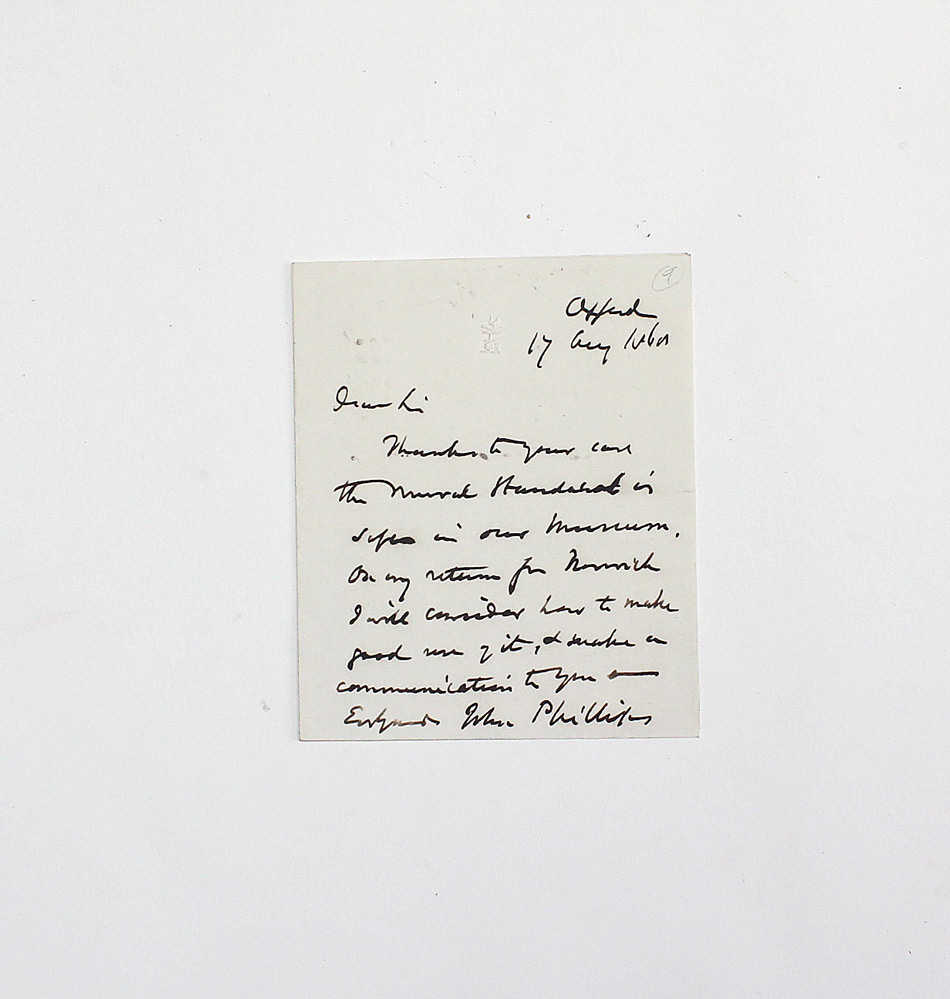 9
Oxford
17 Aug 186
Dear Sir
Thanks to your care
the Mural Standard is
safe in our Museum.
On my return from Norwich
I will consider how to make
good use of it, & make a
communication to you
John Phillips